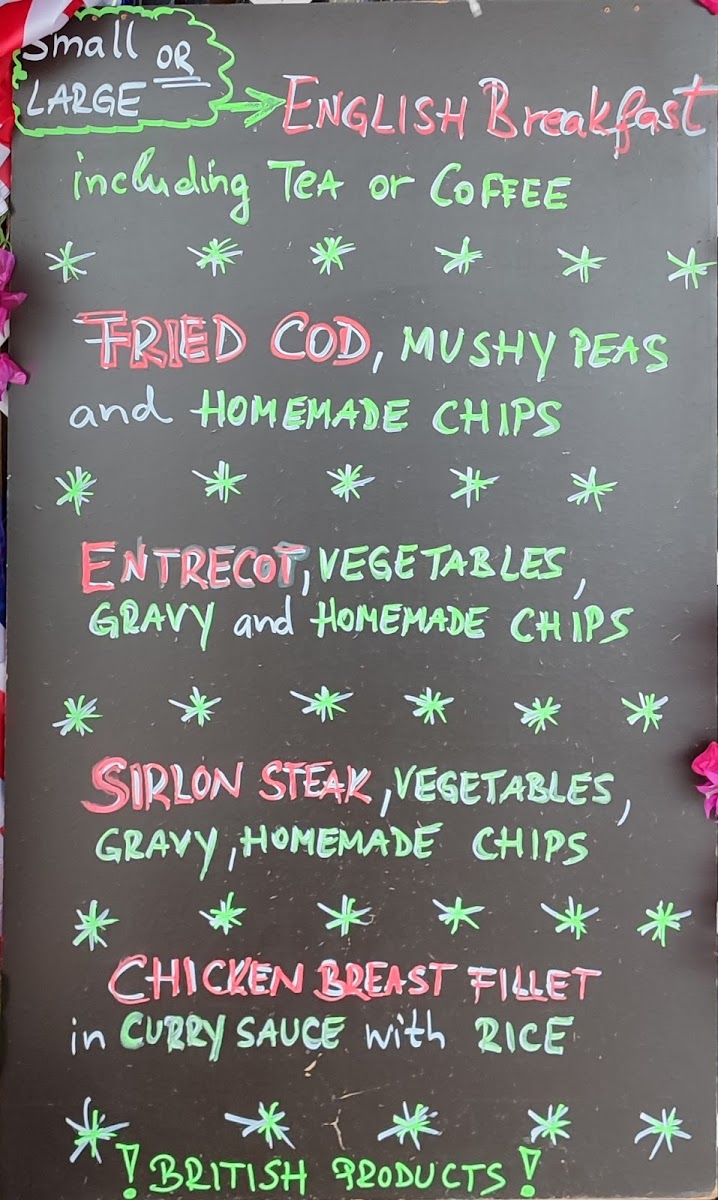 Small OR
LARGE
ENGLISH Breakfast
including TEA or COFFEE
FRIED COD, MUSHY PEAS
and HOMEMADE CHIPS
ENTRECOT, VEGETABLES,
GRAVY and HOMEMADE CHIPS
SIRLON STEAK, VEGETABLES,
GRAVY, HOMEMADE CHIPS
CHICKEN BREAST FILLET
in CURRY SAUCE with RICE
! BRITISH PRODUCTS !